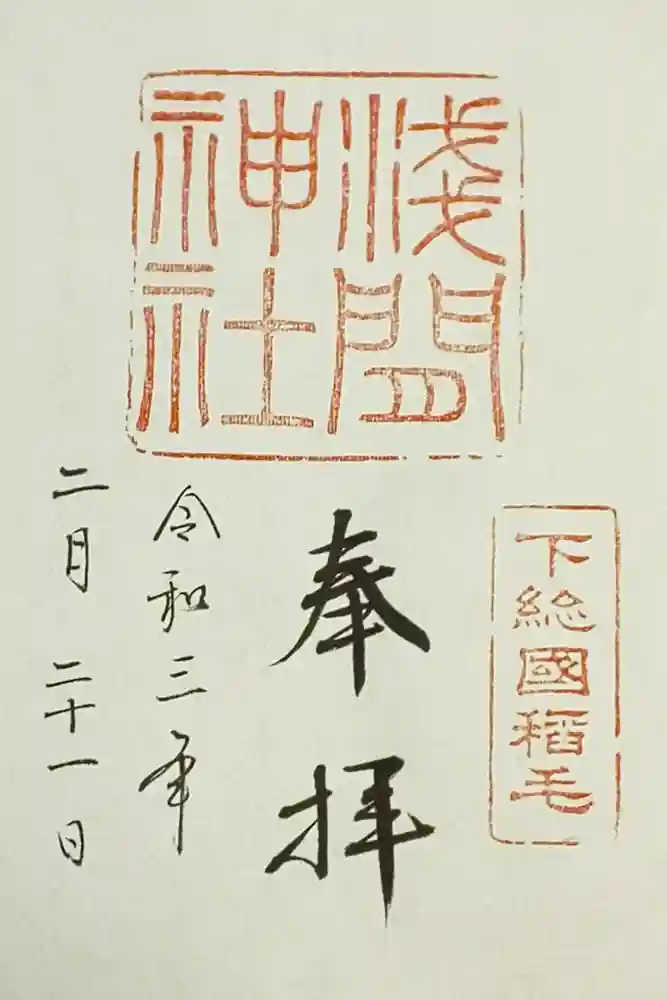 淺間
神社
下総國稲毛
奉拝
令和三年
二月二十一日